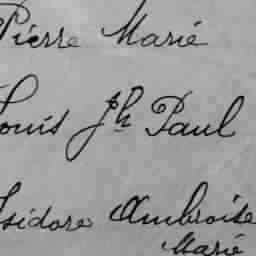 Pierre Marie
Louis Jh Paul
Isidore Ambroise
Marie